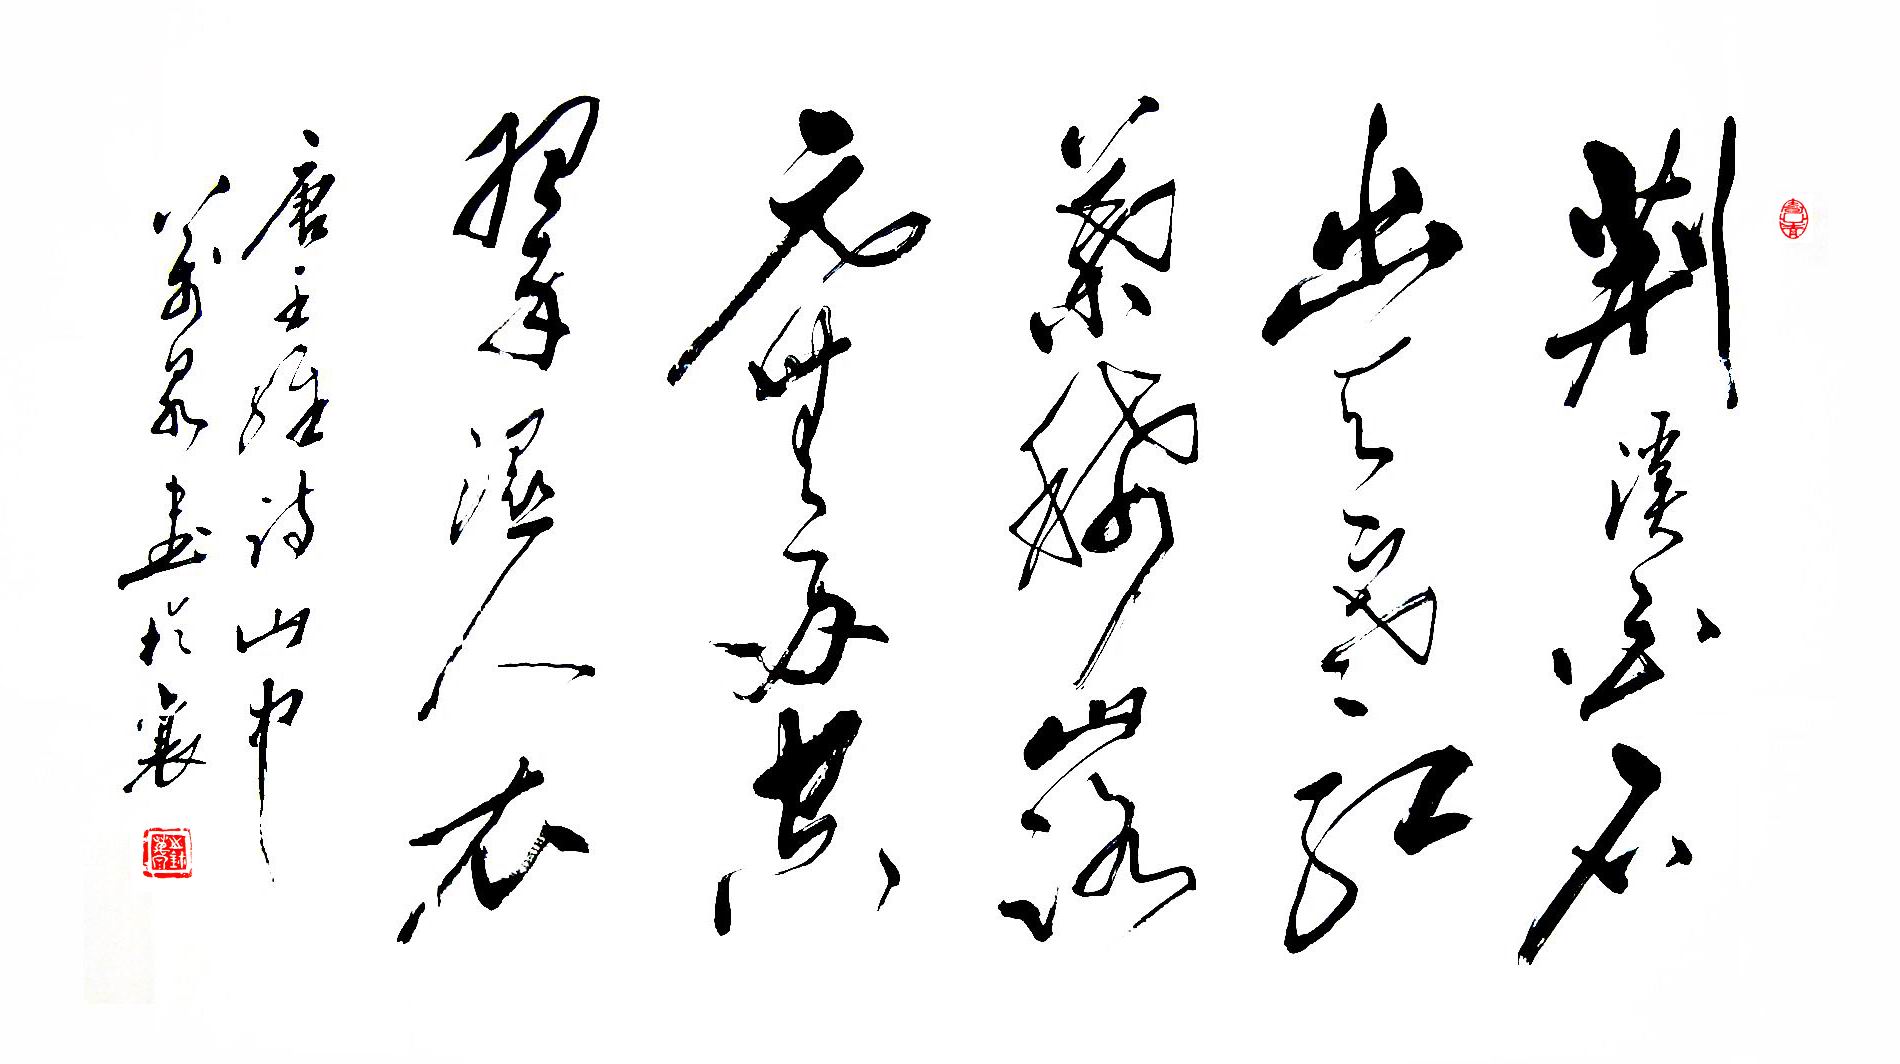 荆溪白石
出天寒红
葉稀山路
元無雨空
翠濕人衣
唐王维诗山中
萬泉書於襄